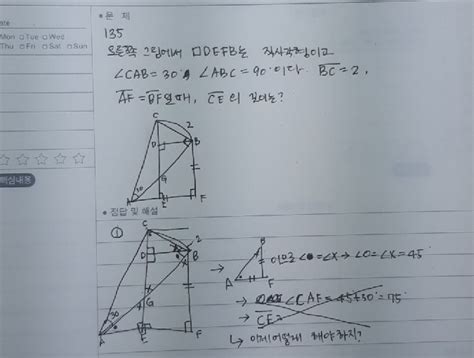 ate
Mon Tue Wed
Thu Fri Sat Sun
핵심내용
• 문 제
135
오른쪽 그림에서 □DEFB는 직사각형이고
∠CAB=30°, ∠ABC=90°이다. BC=2,
AF=BF일 때, CE의 길이는?
C
2
D
B
G
30
A
E
F
• 정답 및 해설
①
C
2
D
B
G
30
A
E
F
B
A
F
→ 이므로 ∠●=∠X → ∠O=∠X=45
→ ∠CAF=45+30°=75°
→ CE=
↳ 이제 어떻게 해야하지?